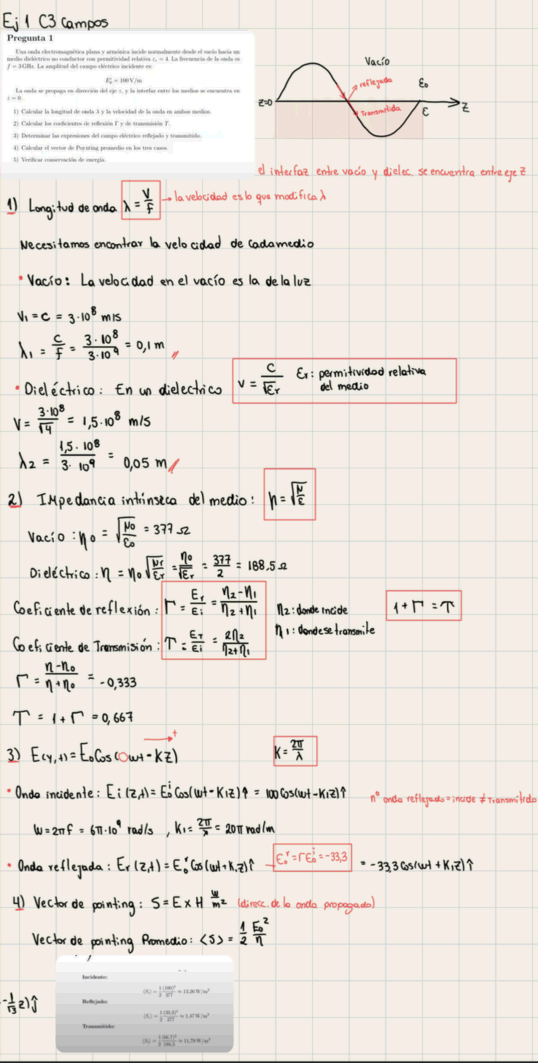 Ej 1 C3 Campos
Pregunta 1
Una onda electromagnética plana y armónica incide normalmente desde el vacío hacia un
medio dieléctrico no conductor con permitividad relativa εr = 4. La frecuencia de la onda es
f = 3 GHz. La amplitud del campo eléctrico incidente es:
E₀ⁱ = 100 V/m
La onda se propaga en dirección del eje z, y la interfaz entre los medios se encuentra en
z = 0.
1) Calcular la longitud de onda λ y la velocidad de la onda en ambos medios.
2) Calcular los coeficientes de reflexión Γ y de transmisión T.
3) Determinar las expresiones del campo eléctrico reflejado y transmitido.
4) Calcular el vector de Poynting promedio en los tres casos.
5) Verificar conservación de energía.
Vacío
reflejada
ε₀
z=0
Transmitida
ε
z
el interfaz entre vacío y dielec. se encuentra entre eje z
1) Longitud de onda λ = V/f → la velocidad es lo que modifica λ
Necesitamos encontrar la velocidad de cada medio
• Vacío: La velocidad en el vacío es la de la luz
V₁ = c = 3·10⁸ m/s
λ₁ = c/f = 3·10⁸/3·10⁹ = 0,1 m
• Dieléctrico: En un dielectrico v = c/√εr εr: permitividad relativa
del medio
V = 3·10⁸/√4 = 1,5·10⁸ m/s
λ₂ = 1,5·10⁸/3·10⁹ = 0,05 m
2) Impedancia intrínseca del medio: η = √μ/ε
Vacío: η₀ = √μ₀/ε₀ = 377 Ω
Dieléctrico: η = η₀ √μr/εr = η₀/√εr = 377/2 = 188,5 Ω
Coeficiente de reflexión: Γ = Er/Ei = η₂-η₁/η₂+η₁ η₂: donde incide 1+Γ = T
η₁: donde se transmite
Coeficiente de Transmisión: T = ET/Ei = 2η₂/η₂+η₁
Γ = η-η₀/η+η₀ = -0,333
T = 1+Γ = 0,667
3) E(y,t) = E₀ Cos(wt - Kz) K = 2π/λ
• Onda incidente: Ei(z,t) = E₀ⁱ Cos(wt - K₁z)↑ = 100 Cos(wt - K₁z)↑ n° onda reflejado = incide ≠ Transmitido
W = 2πf = 6π·10⁹ rad/s , K₁ = 2π/λ = 20π rad/m
• Onda reflejada: Er(z,t) = E₀ʳ Cos(wt + K₁z)↑ → E₀ʳ = ΓE₀ⁱ = -33,3 = -33,3 Cos(wt + K₁z)↑
4) Vector de pointing: S = E x H w/m² (direcc. de la onda propagada)
Vector de pointing Promedio: <S> = 1/2 E₀²/η
Incidente:
⟨Si⟩ = 1/2 (100)²/377 ≈ 13,26 W/m²
-1/√3 z)ĵ
Reflejado:
Transmitido: